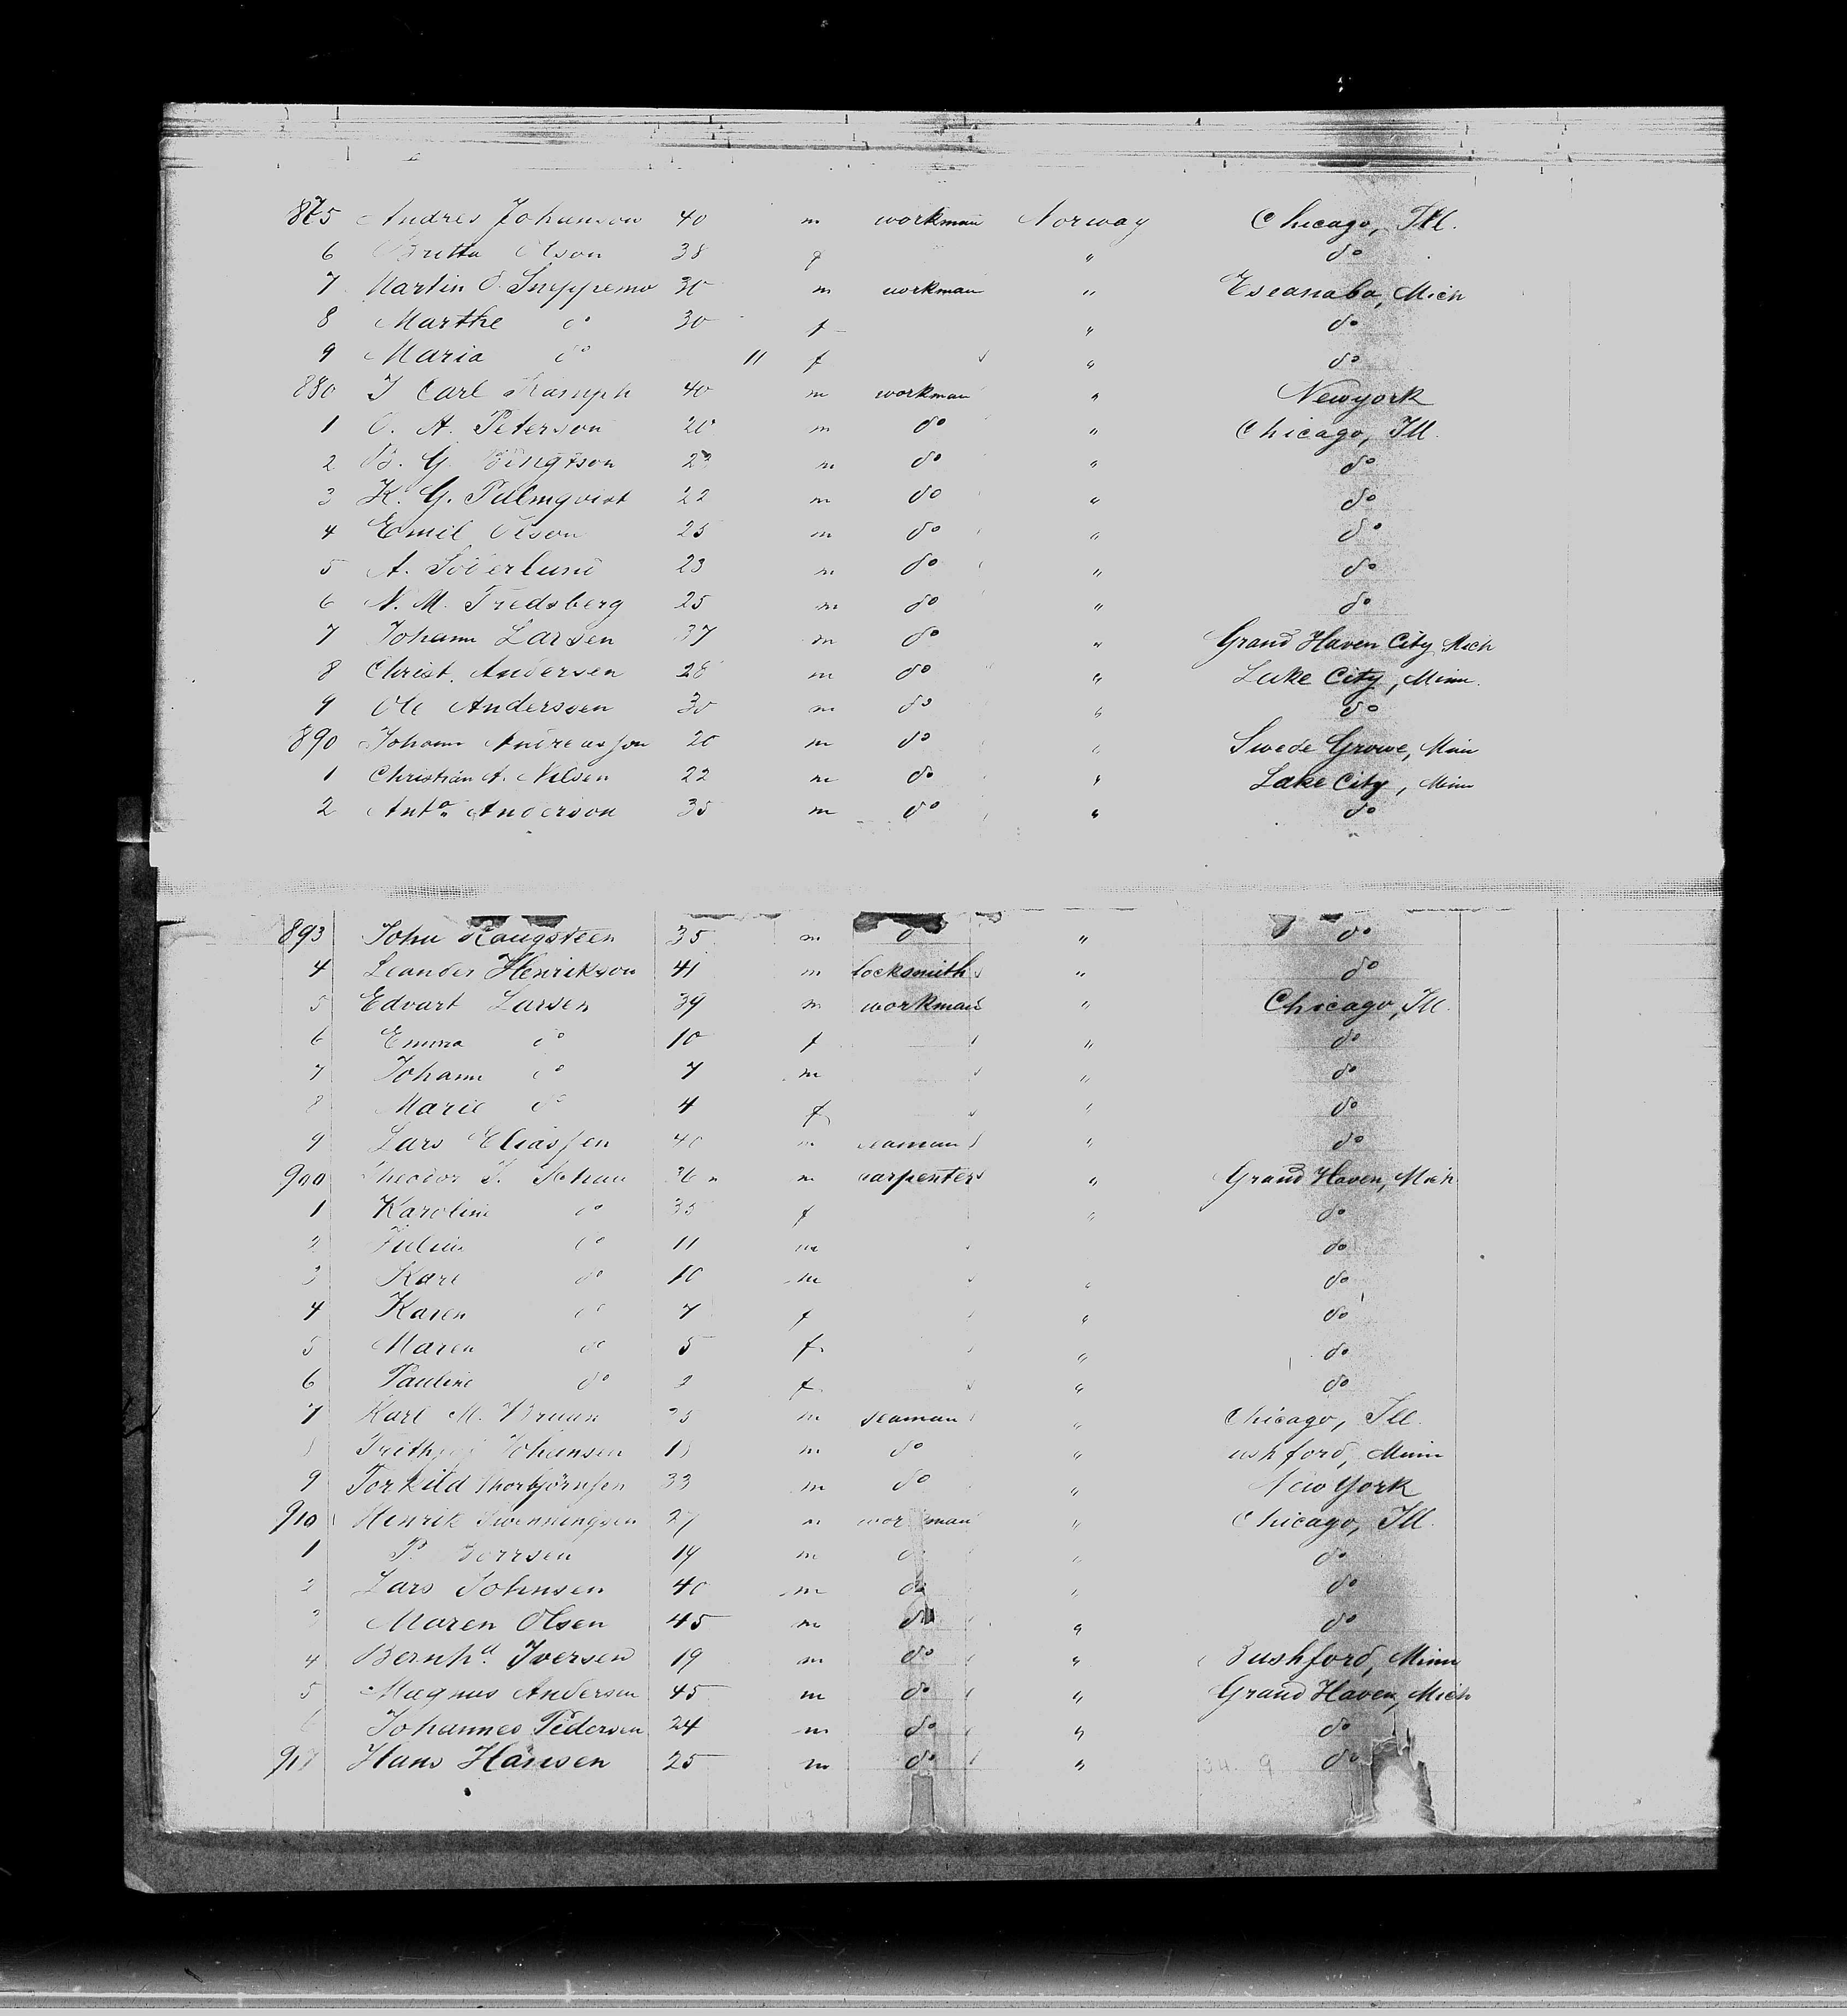 875 Andres Johanson 40 m workman Norway Chicago, Ill.
6 Britta Olson 38 f " do
7 Martin O. 30 m workman " Escanaba, Mich
8 Marthe do 30 f " do
9 Maria do 11 f " do
880 J Carl Kamph 40 m workman " Newyork
1 O. A. Peterson 20 m do " Chicago, Ill.
2 B. G. Bingtson 23 m do " do
3 K. G. Palmqvist 22 m do " do
4 Emil Olson 25 m do " do
5 A. Söderlund 23 m do " do
6 N. M. Fredsberg 25 m do " do
7 Johann Larsen 37 m do " Grand Haven City Mich
8 Christ. Andersen 28 m do " Lake City, Minn.
9 Ole Anderssen 30 m do " do
890 Johann Andreassen 20 m do " Swede Growe, Minn
1 Christian A. Nilsen 22 m do " Lake City, Minn
2 Anto Anderson 35 m do " do
893 John Kaugsteen 35 m do " do
4 Leander Henrikson 41 m locksmith " do
5 Edvart Larsen 39 m workman " Chicago, Ill.
6 Emma do 10 f " do
7 Johann do 7 m " do
8 Marie do 4 f " do
9 Lars Eliassen 40 m seaman " do
900 Theodor Schau 36 m carpenter " Grand Haven, Mich
1 Karoline do 35 f " do
2 Julius do 11 m do
3 Karl do 10 m " do
4 Karen do 7 f " do
5 Maren do 5 f " do
6 Pauline do 2 f " do
7 Karl M. Bruun 25 m seaman " Chicago, Ill.
Johansen m do " ushford, Minn
9 Torkild Thorbjörnsen 33 m do " New York
910 Henrik Swenningsen 27 m workman " Chicago, Ill.
1 P. 19 m do " do
2 Lars Johnsen 40 m do " do
3 Maren Olsen 45 m do " do
4 Bernhd. Iversen 19 m do " Rushford, Minn
5 Magnus Andersen 45 m do " Grand Haven, Mich
6 Johannes Pedersen 24 m do " do
917 Hans Hansen 25 m do " do